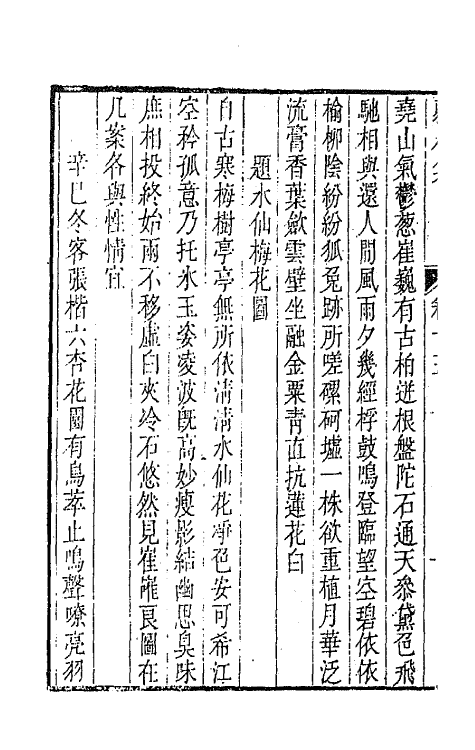 堯山氣鬱葱崔巍有古柏迸根盤陀石通天叅黛色飛
馳相與還人間風雨夕幾經桴鼓鳴登臨望空碧依依
榆柳陰紛紛狐兔跡所嗟磥砢墟一株欲重植月華泛
流膏香葉歛雲壁坐融金粟靑直抗蓮花白
題水仙梅花圖
自古寒梅樹亭亭無所依淸淸水仙花凈色安可希江
空矜孤意乃托氷玉姿凌波旣高妙瘦影結幽思臭味
庶相投終始兩不移虛白夾冷石悠然見崔嵬良圖在
几案各與性情宜
辛巳冬客張楷六杏花園有鳥萃止鳴聲嘹亮羽